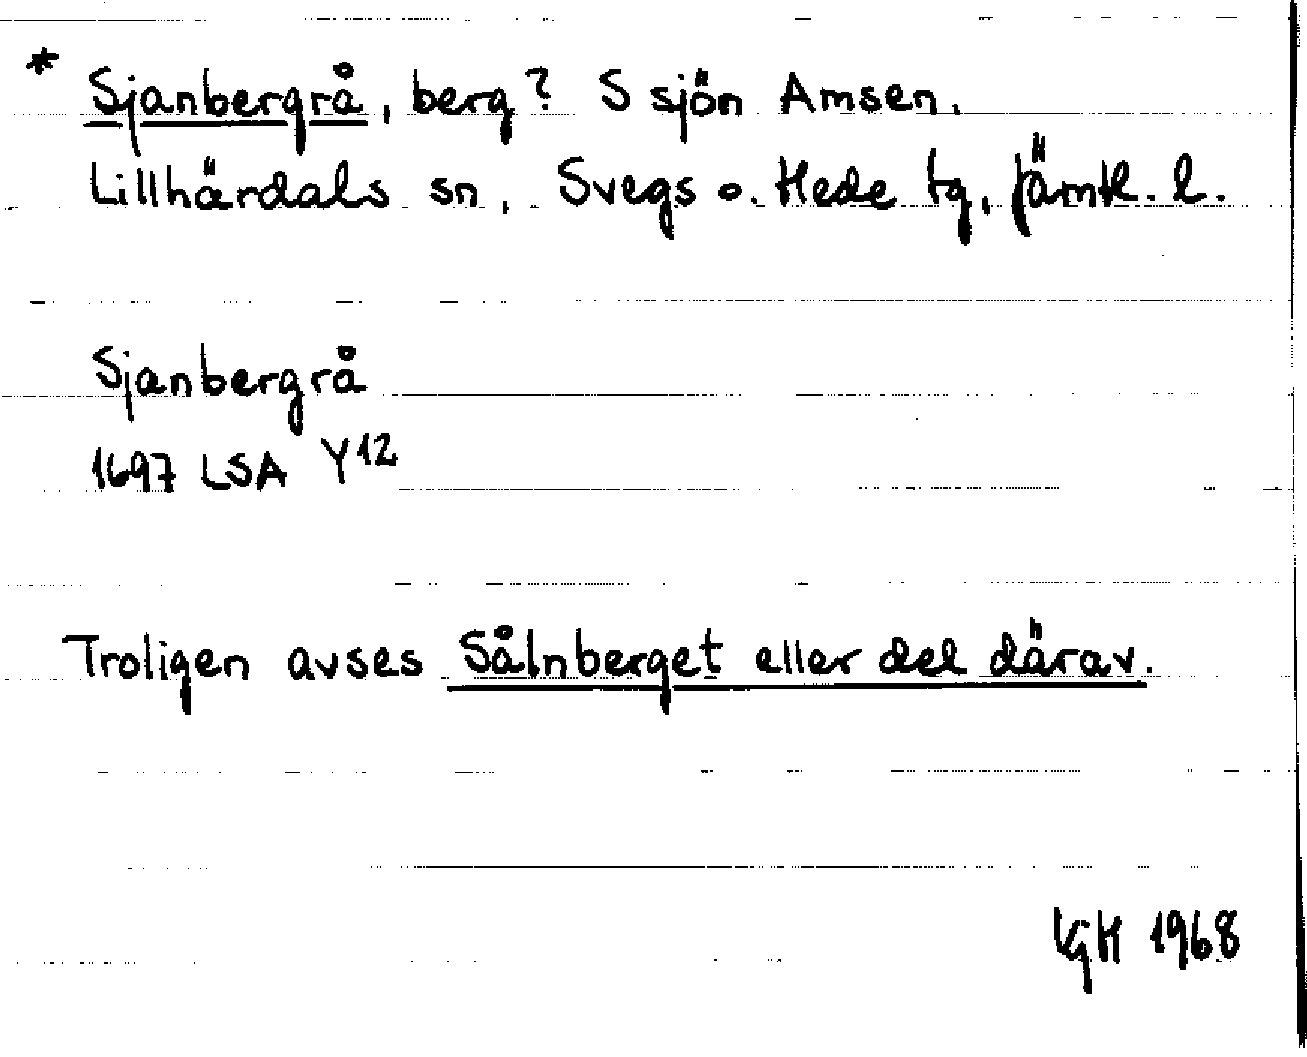 * Sjanbergrå, berg? S sjön Amsen.
Lillhärdals sn, Svegs o. Hede tg, Jämtl. l.
Sjanbergrå
1697 LSA Y12
Troligen avses Sålnberget eller del därav.
KGH 1968